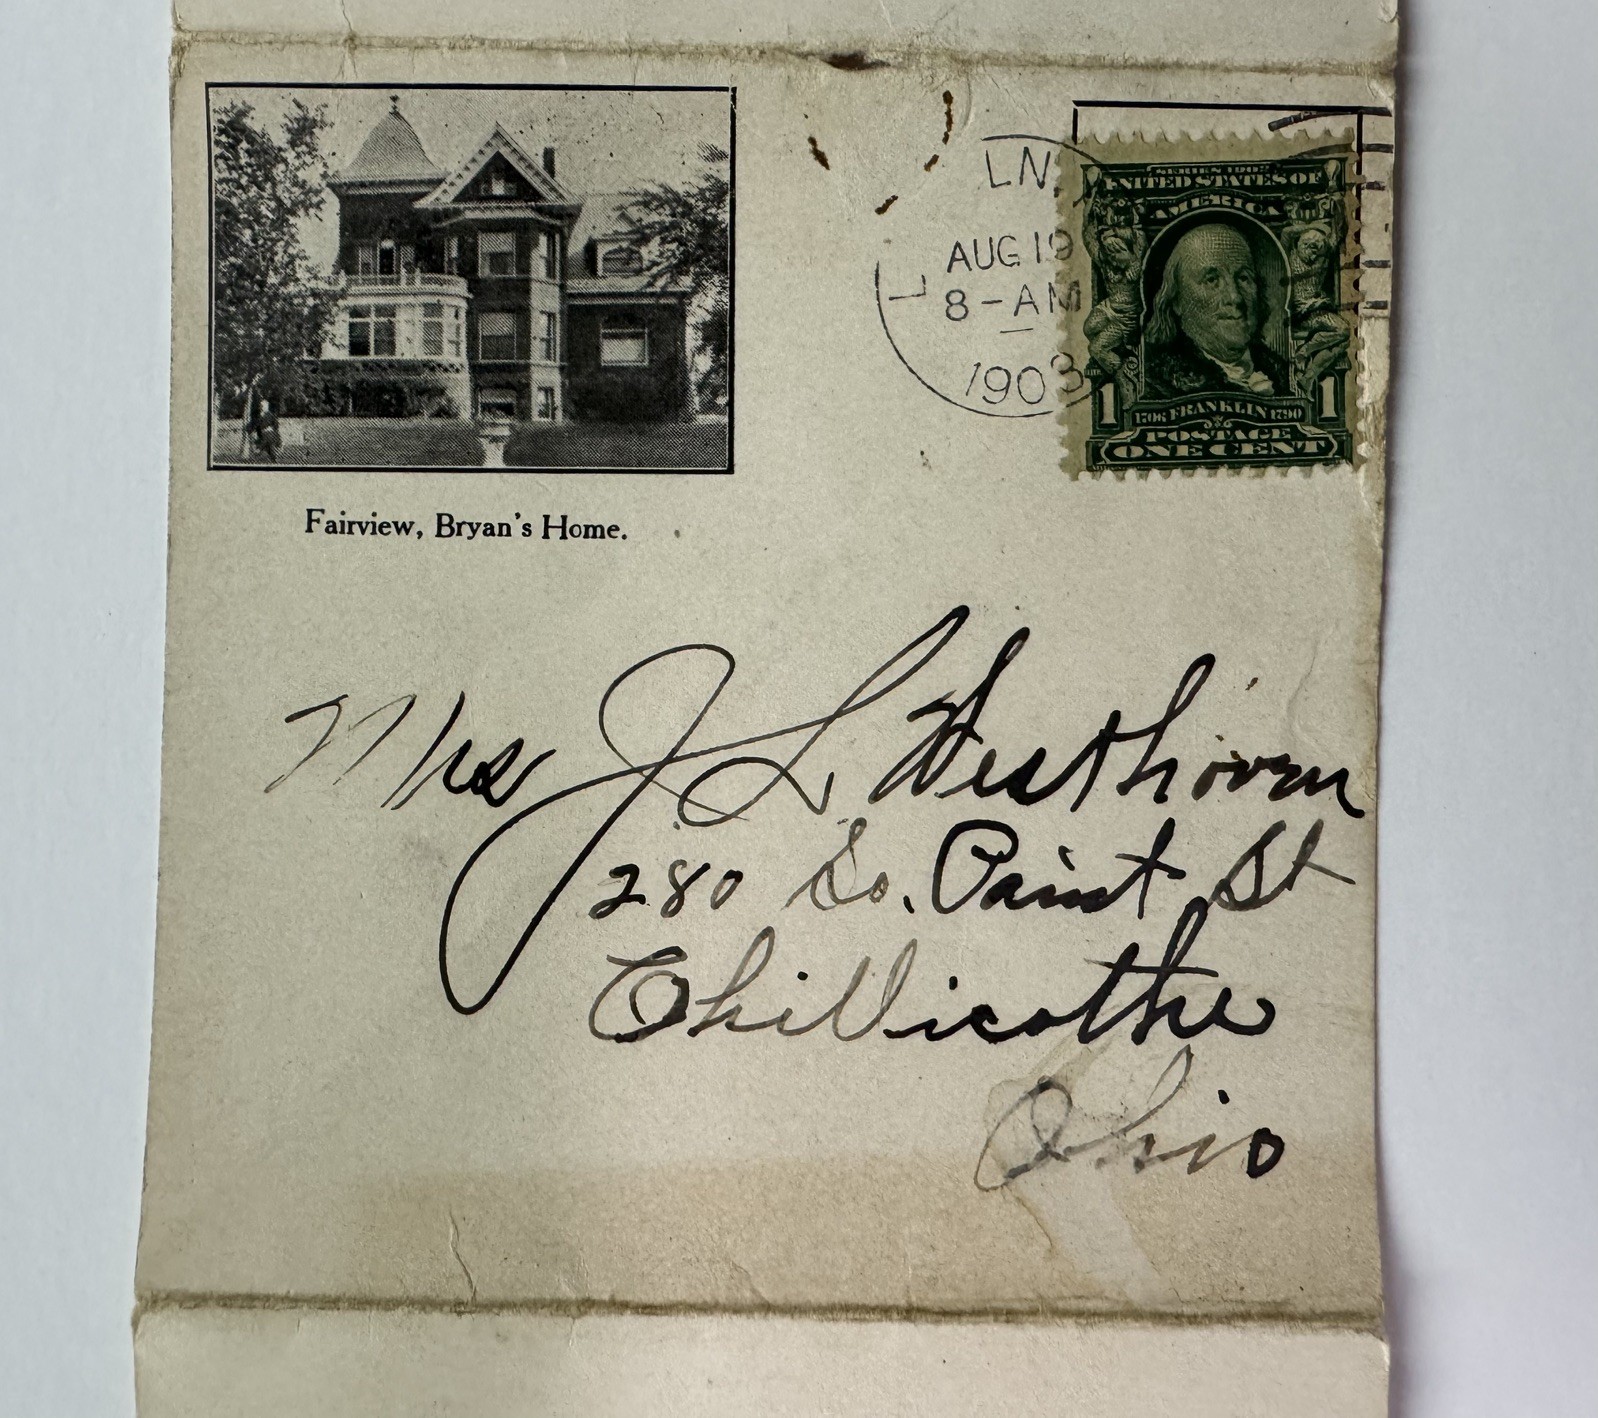 Fairview, Bryan's Home.
LN.
AUG 19
8-AM
1908
SERIES 1902
UNITED STATES OF
AMERICA
1 1706 FRANKLIN 1790 1
POSTAGE
ONE CENT
Mrs J L Westhoven
280 So. Paint St
Chillicothe
Ohio